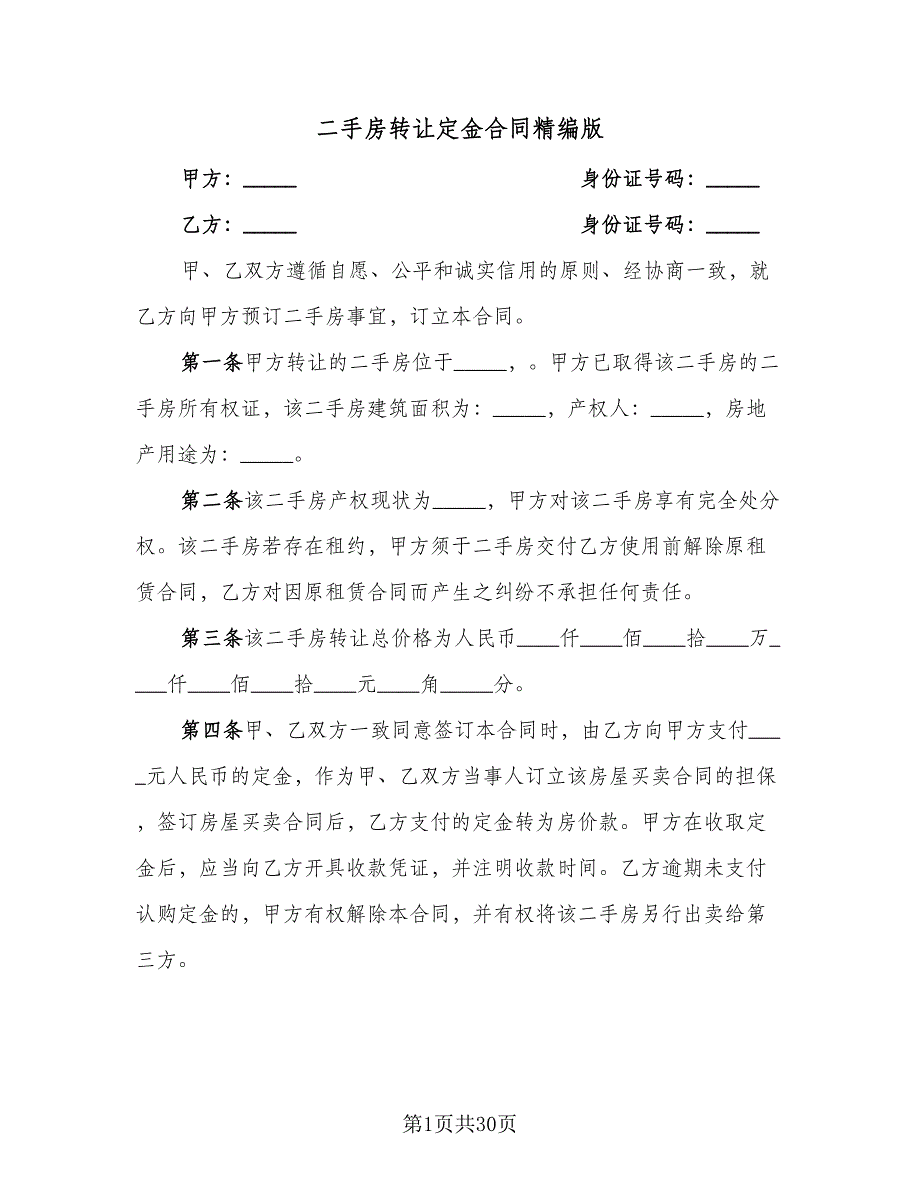 二手房转让定金合同精编版
甲方：_____ 身份证号码：_____
乙方：_____ 身份证号码：_____
甲、乙双方遵循自愿、公平和诚实信用的原则、经协商一致，就
乙方向甲方预订二手房事宜，订立本合同。
第一条甲方转让的二手房位于_____，。甲方已取得该二手房的二
手房所有权证，该二手房建筑面积为：_____，产权人：_____，房地
产用途为：_____。
第二条该二手房产权现状为_____，甲方对该二手房享有完全处分
权。该二手房若存在租约，甲方须于二手房交付乙方使用前解除原租
赁合同，乙方对因原租赁合同而产生之纠纷不承担任何责任。
第三条该二手房转让总价格为人民币____仟____佰____拾____万_
___仟____佰____拾____元____角_____分。
第四条甲、乙双方一致同意签订本合同时，由乙方向甲方支付___
_元人民币的定金，作为甲、乙双方当事人订立该房屋买卖合同的担保
，签订房屋买卖合同后，乙方支付的定金转为房价款。甲方在收取定
金后，应当向乙方开具收款凭证，并注明收款时间。乙方逾期未支付
认购定金的，甲方有权解除本合同，并有权将该二手房另行出卖给第
三方。
第1页共30页